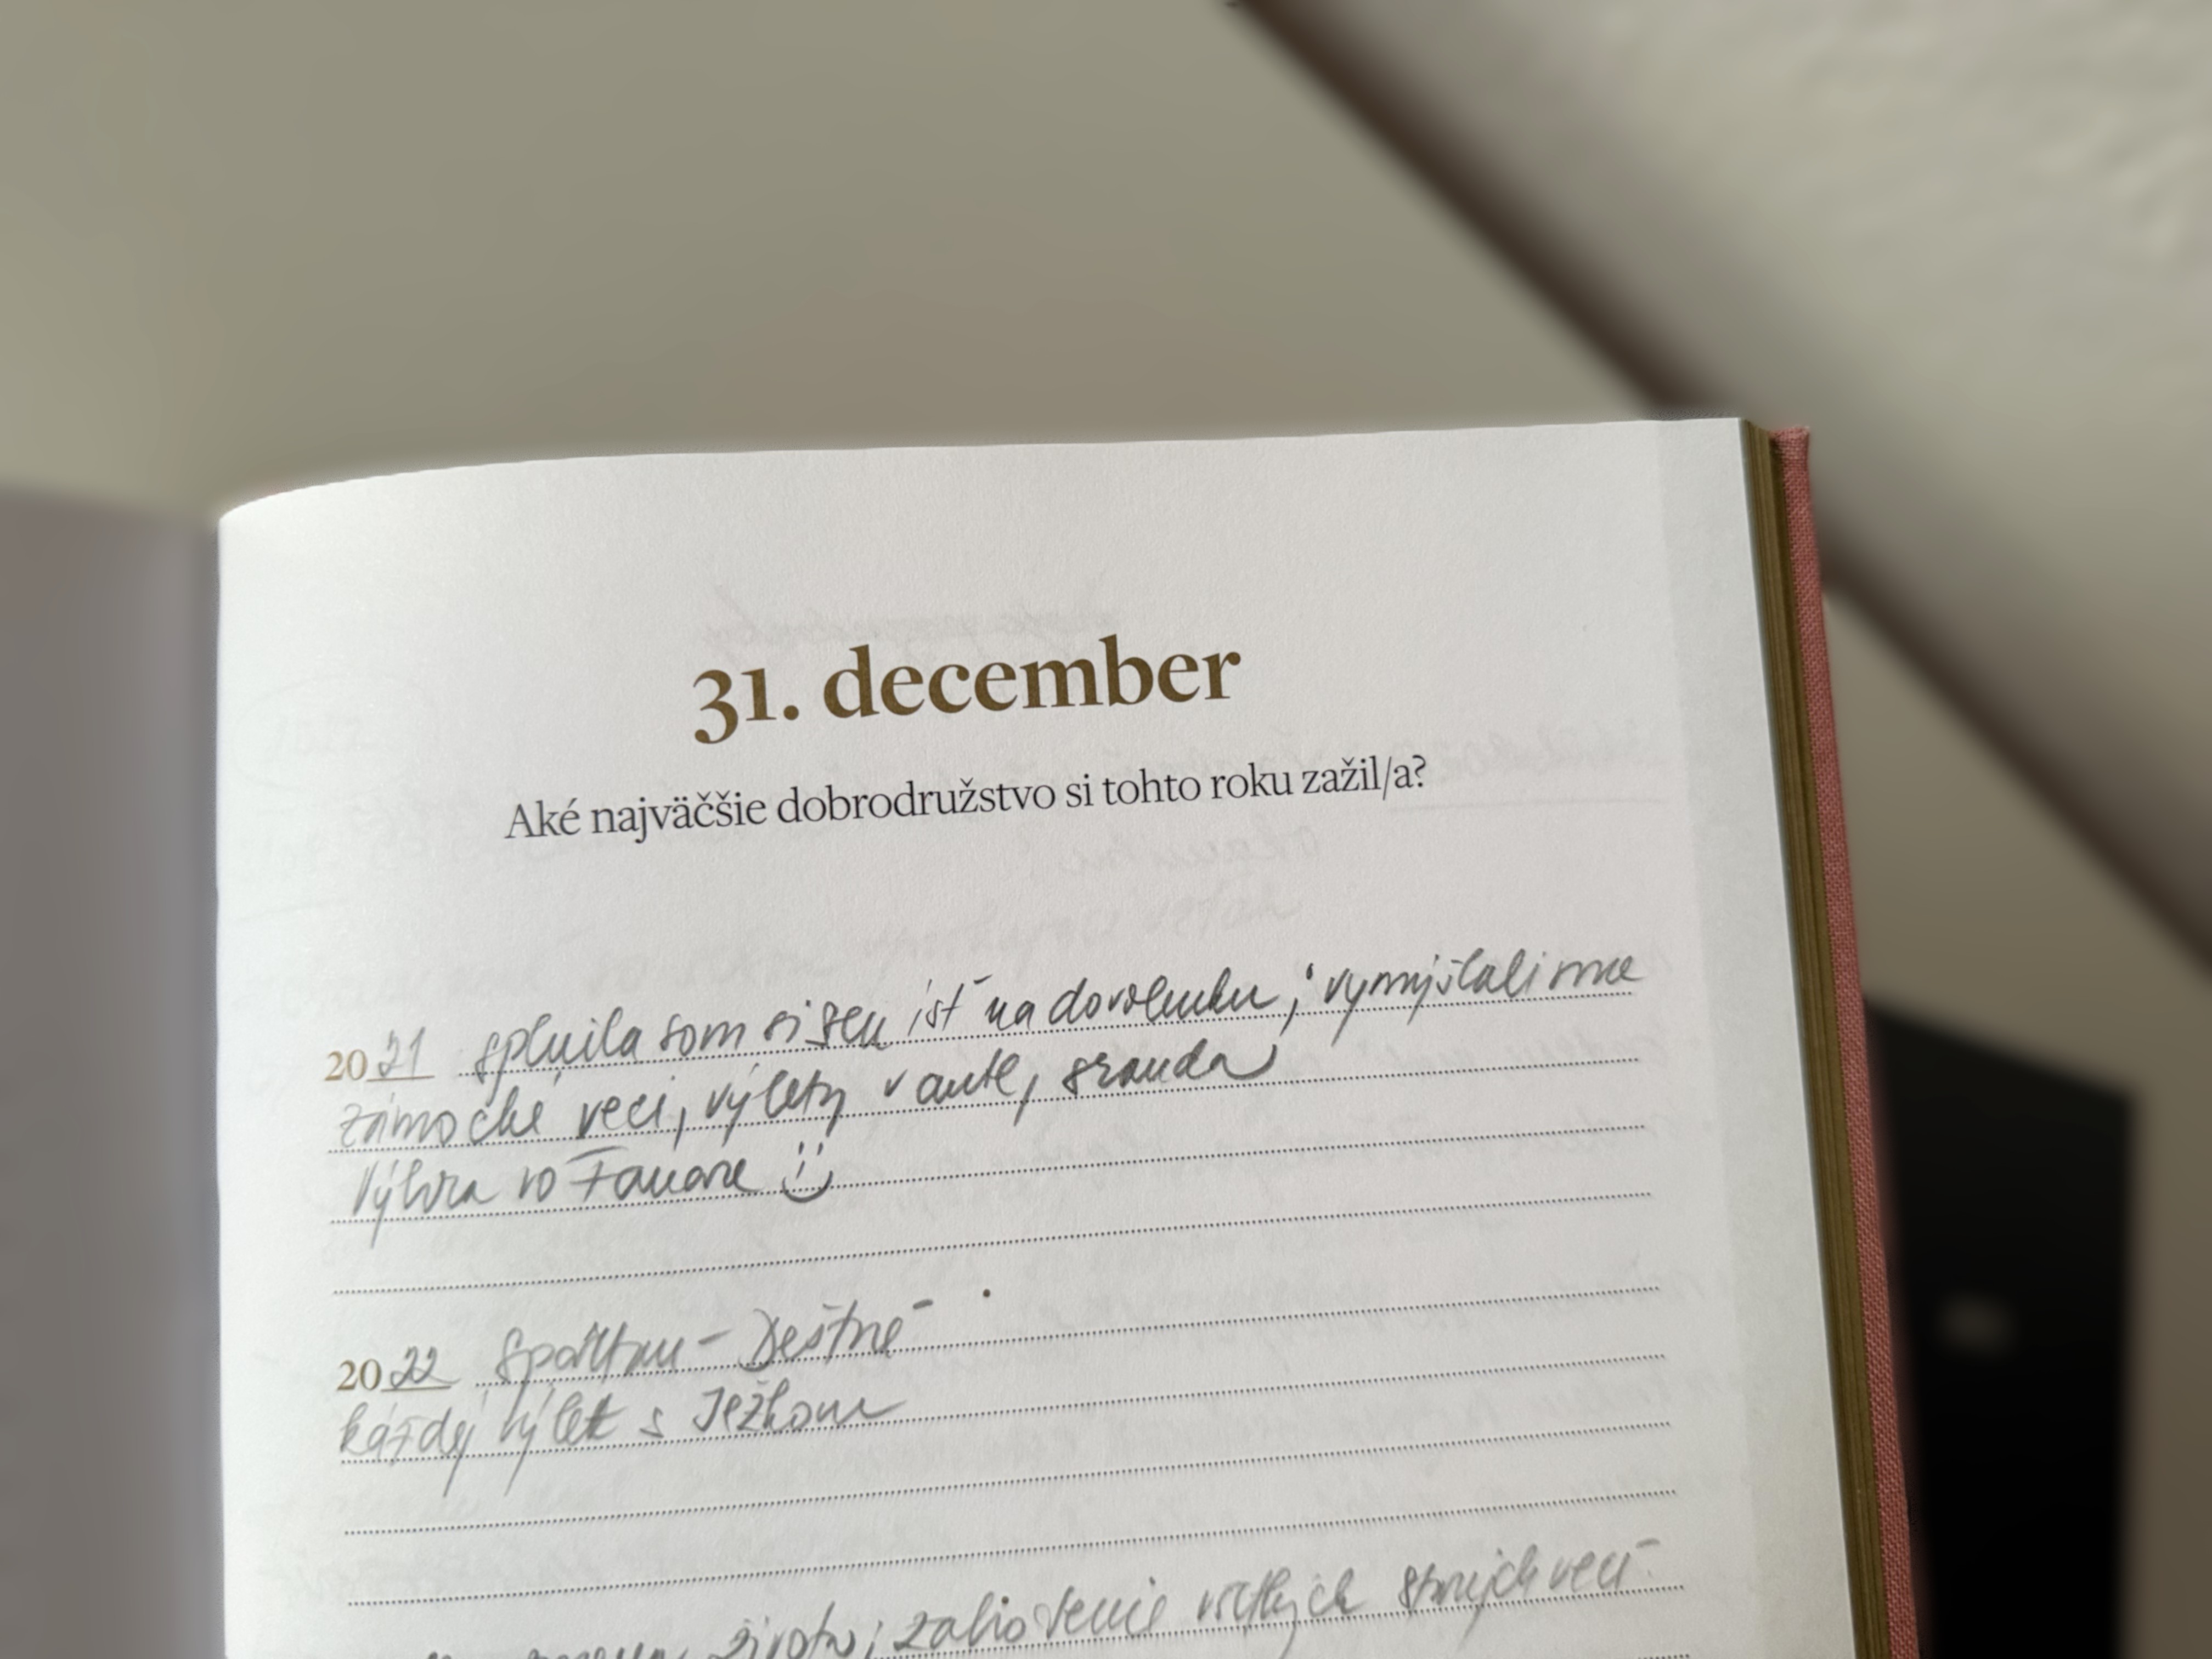 31. december
Aké najväčšie dobrodružstvo si tohto roku zažil/a?
2021 splnila som si sen ísť na dovolenku; vymýšľali sme
zámocké veci, výlety v aute, sranda
Výhra vo Fanore :)
2022 Špatkou - Deštné
každý výlet s Ježkom
života; zahodenie všetkých starých vecí